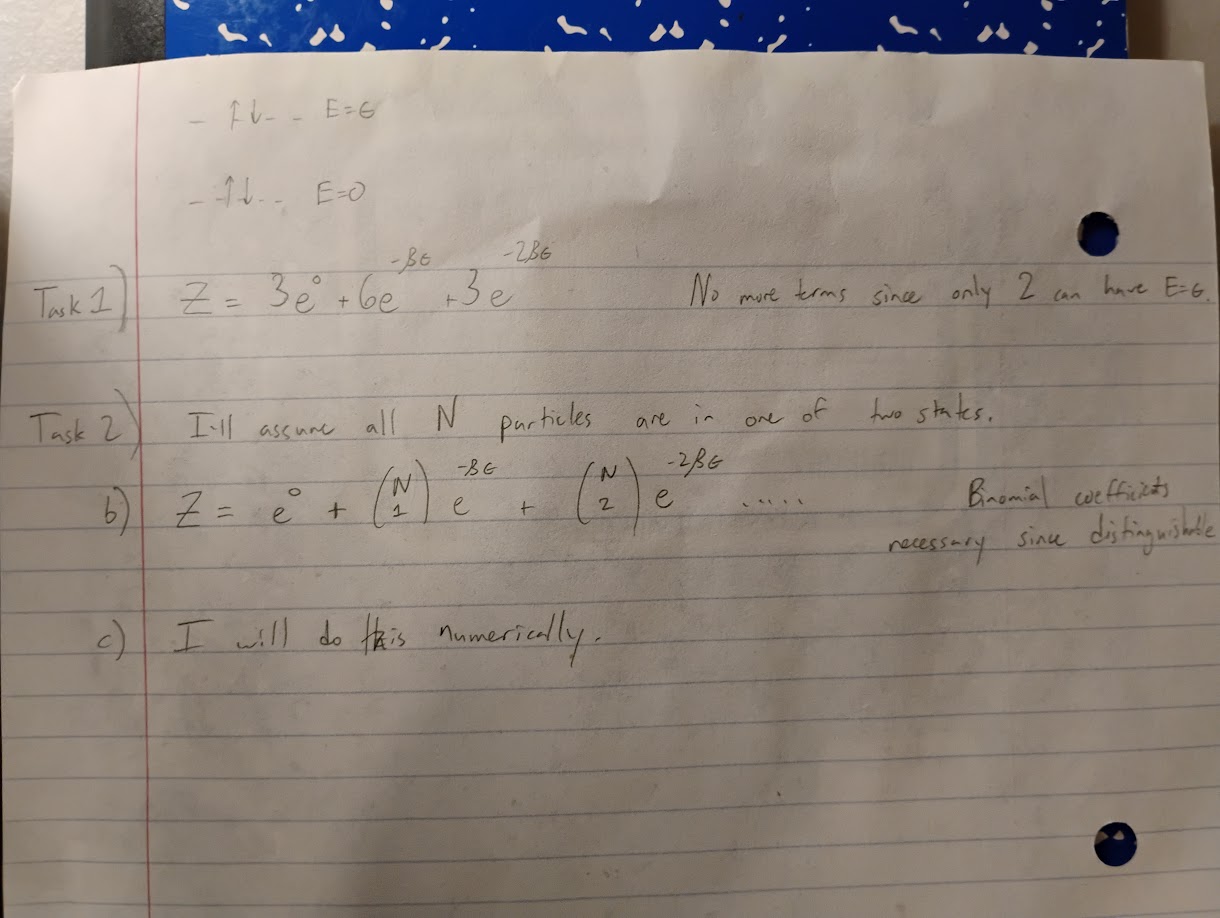 - ↑↓ - - E=ϵ
- ↑↓ - - E=0
Task 1) Z = 3e⁰ + 6e^(-βϵ) + 3e^(-2βϵ) No more terms since only 2 can have E=ϵ.
Task 2) I'll assume all N particles are in one of two states.
b) Z = e⁰ + (N 1) e^(-βϵ) + (N 2) e^(-2βϵ) ..... Binomial coefficients
necessary since distinguishable
c) I will do this numerically.